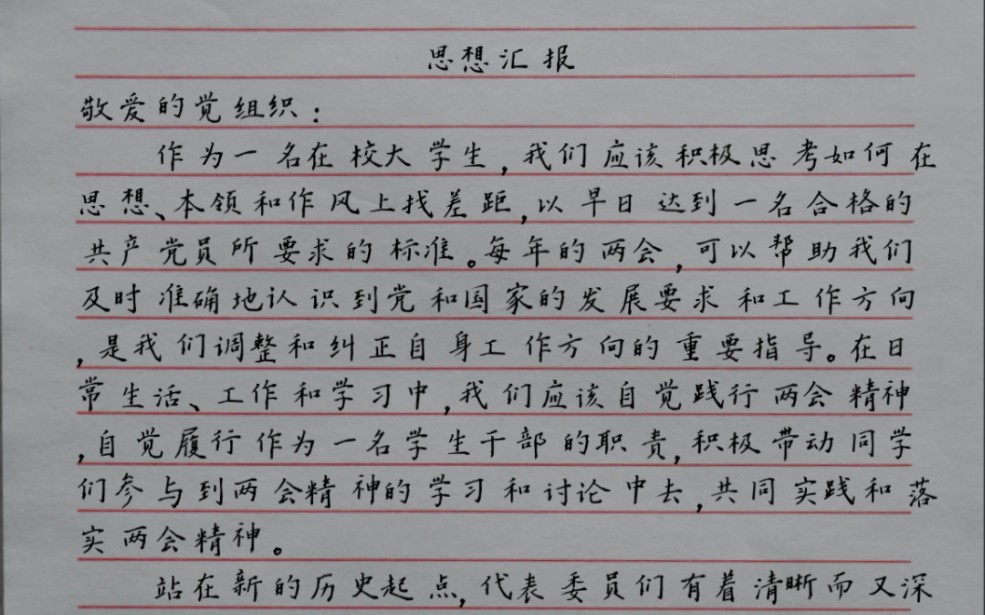 思想汇报
敬爱的党组织:
作为一名在校大学生,我们应该积极思考如何在
思想、本领和作风上找差距,以早日达到一名合格的
共产党员所要求的标准。每年的两会,可以帮助我们
及时准确地认识到党和国家的发展要求和工作方向
,是我们调整和纠正自身工作方向的重要指导。在日
常生活、工作和学习中,我们应该自觉践行两会精神
,自觉履行作为一名学生干部的职责,积极带动同学
们参与到两会精神的学习和讨论中去,共同实践和落
实两会精神。
站在新的历史起点,代表委员们有着清晰而又深